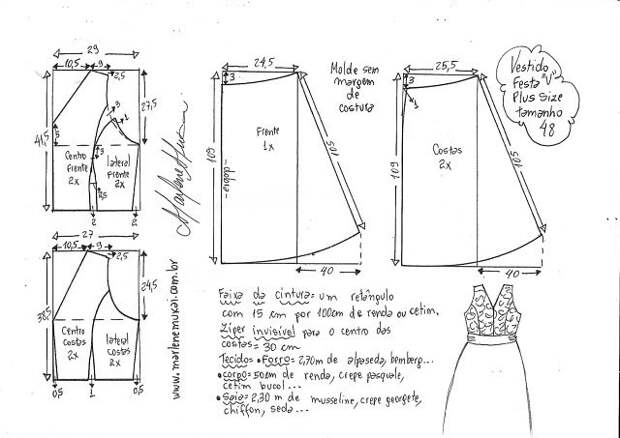 29
10,5
9
2,5
27,5
3
1
41,5
5
3
Centro
Frente
2x
lateral
Frente
2x
2,5
2
27
10,5
9
2,5
24,5
38,5
Centro
costas
2x
lateral
costas
2x
0,5
1
0,5
www.marlenemukai.com.br
Marlene Mukai
24,5
3
Frente
1x
109
-dobra-
105
40
Molde sem
margem
de
costura
25,5
3
1
Costas
2x
109
105
40
Vestido
Festa "V"
Plus Size
tamanho
48
Faixa da cintura= um retângulo
com 15 cm por 100cm de renda ou cetim.
Ziper invisível para o centro das
costas = 30 cm
Tecidos= •Forro= 2,70m de alpaseda, bemberg...
•corpo= 50cm de renda, crepe pasquale,
cetim bucol...
•Saia= 2,30 m de musseline, crepe georgete,
chiffon, seda...